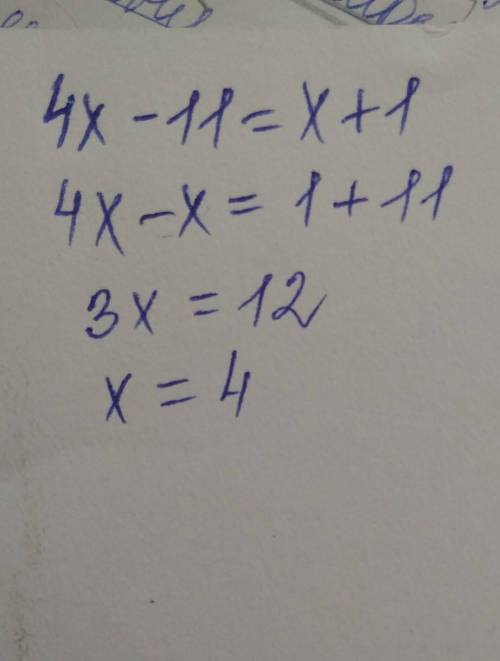 4x - 11 = x + 1
4x - x = 1 + 11
3x = 12
x = 4